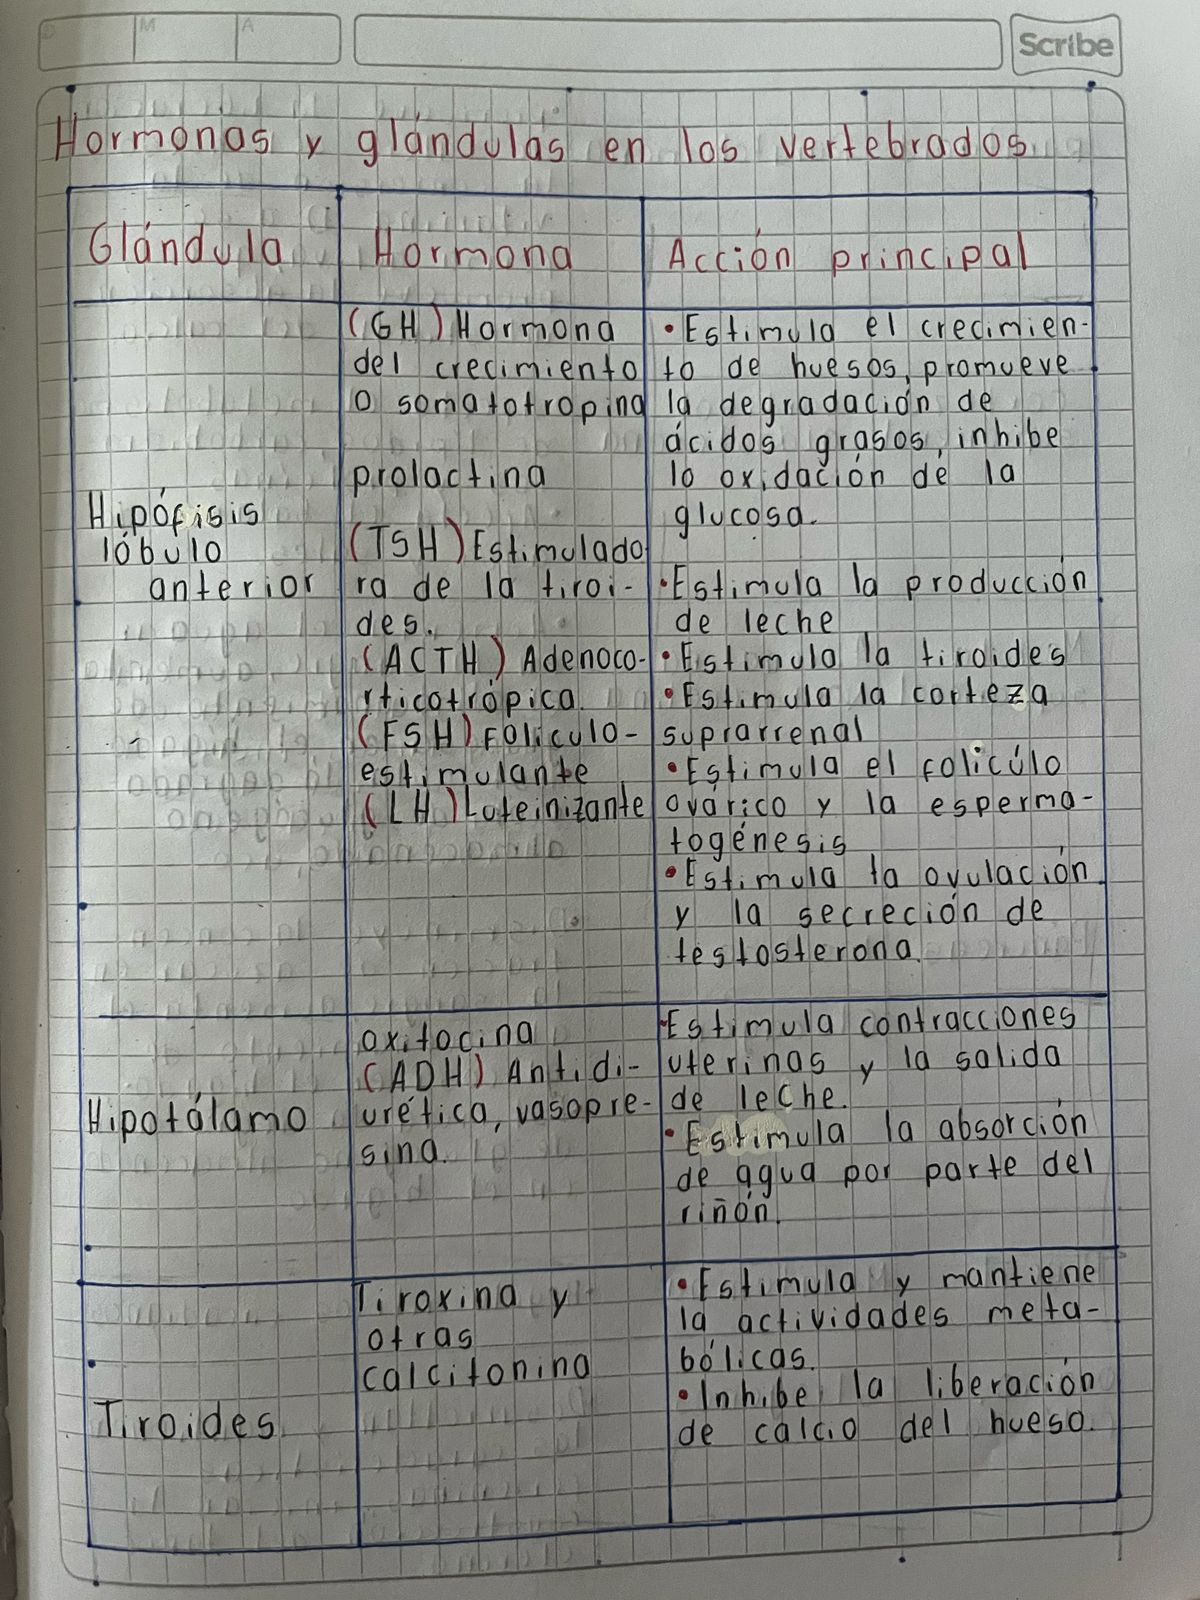 D
M
A
Scribe
Hormonas y glándulas en los vertebrados
Glándula
Hormona
Acción principal
Hipófisis
lóbulo
anterior
(GH) Hormona
del crecimiento
o somatotropina
prolactina
(TSH) Estimulado
ra de la tiroi-
des.
(ACTH) Adenoco-
rticotrópica
(FSH) Foliculo-
estimulante
(LH) Luteinizante
• Estimula el crecimien-
to de huesos, promueve
la degradación de
ácidos grasos, inhibe
lo oxidación de la
glucosa.
• Estimula la producción
de leche
• Estimula la tiroides
• Estimula la corteza
suprarrenal
• Estimula el folicúlo
ovárico y la esperma-
togénesis
• Estimula la ovulación
y la secreción de
testosterona.
Hipotálamo
oxitocina
(ADH) Antidi-
urética, vasopre-
sina.
• Estimula contracciones
uterinas y la salida
de leche.
• Estimula la absorción
de agua por parte del
riñón.
Tiroides
Tiroxina y
otras
calcitonina
• Estimula y mantiene
la actividades meta-
bólicas.
• Inhibe la liberación
de calcio del hueso.